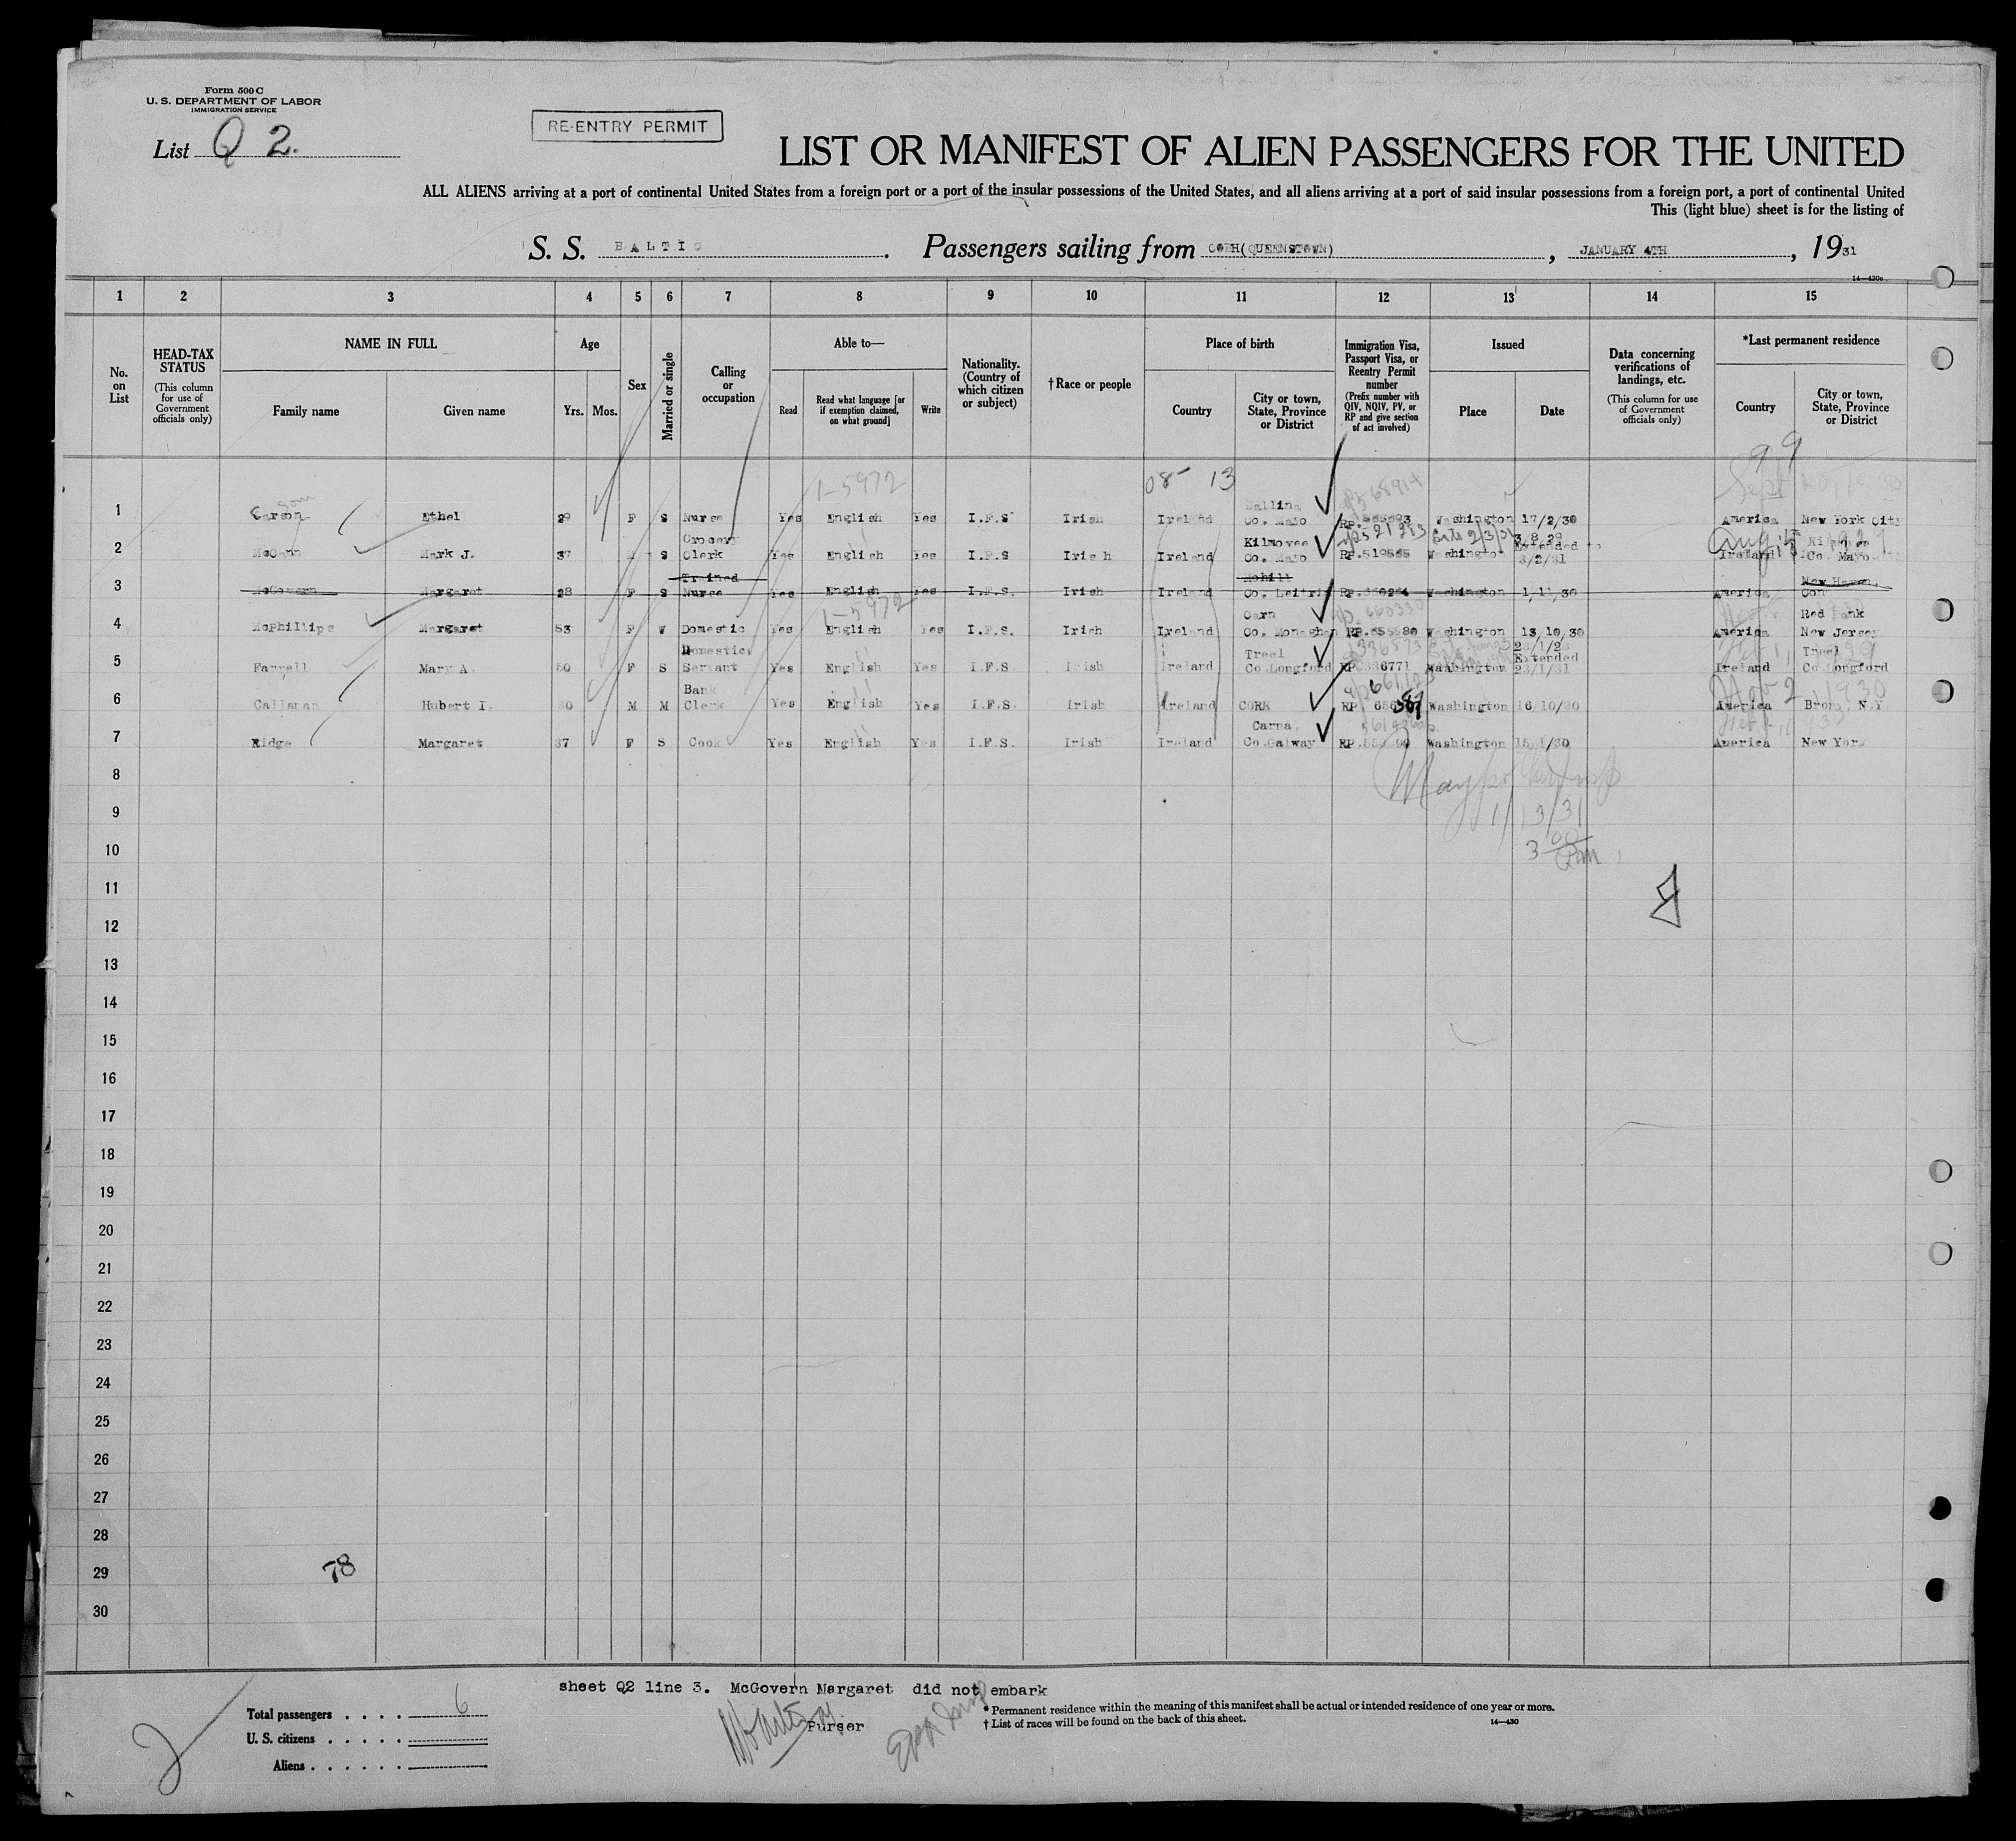 Form 500 C
U. S. DEPARTMENT OF LABOR
IMMIGRATION SERVICE
List Q 2.
RE-ENTRY PERMIT
LIST OR MANIFEST OF ALIEN PASSENGERS FOR THE UNITED
ALL ALIENS arriving at a port of continental United States from a foreign port or a port of the insular possessions of the United States, and all aliens arriving at a port of said insular possessions from a foreign port, a port of continental United
This (light blue) sheet is for the listing of
S. S. BALTIC. Passengers sailing from COBH(QUEENSTOWN), JANUARY 4TH, 1931
14—430c
1 2 3 4 5 6 7 8 9 10 11 12 13 14 15
No. on List
HEAD-TAX STATUS (This column for use of Government officials only)
NAME IN FULL
Family name Given name
Age
Yrs. Mos.
Sex
Married or single
Calling or occupation
Able to—
Read
Read what language [or if exemption claimed, on what ground]
Write
Nationality. (Country of which citizen or subject)
†Race or people
Place of birth
Country
City or town, State, Province or District
Immigration Visa, Passport Visa, or Reentry Permit number (Prefix number with QIV, NQIV, PV, or RP and give section of act involved)
Issued
Place Date
Data concerning verifications of landings, etc. (This column for use of Government officials only)
*Last permanent residence
Country
City or town, State, Province or District
99
1-5972 08- 13
1 Carson Ethel 29 F S Nurse Yes English Yes I.F.S Irish Ireland Ballina Co. Mayo RP. Washington 17/2/30 America New York City
2 McCann Mark J. 37 S Grocery Clerk Yes English Yes I.F.S Irish Ireland Kilmovee Co. Mayo RP.519565 Washington 3.8.29 Extended to 3/2/31 Ireland Co. Mayo
3 McGovern Margaret 28 F S Trained Nurse Yes English Yes I.F.S. Irish Ireland Mohill Co. Leitrim RP. Washington 1/11/30 America New Haven, Con
1-5972
4 McPhillips Margaret 53 F W Domestic Yes English Yes I.F.S. Irish Ireland Carn Co. Monaghan RP. Washington 13/10/30 America Red Bank New Jersey
5 Farrell Mary A. 50 F S Domestic Servant Yes English Yes I.F.S Irish Ireland Treel Co.Longford RP.336771 Washington Extended 23/1/31 Ireland Treel Co.Longford
6 Callanan Hubert I. 30 M M Bank Clerk Yes English Yes I.F.S. Irish Ireland CORK RP Washington 16/10/30 America Bronx N.Y.
7 Ridge Margaret 37 F S Cook Yes English Yes I.F.S. Irish Ireland Carna, Co.Galway RP. Washington America New York
8
1/13/31
9
10
3 00 PM
11
12
13
14
15
16
17
18
19
20
21
22
23
24
25
26
27
28
29 78
30
sheet Q2 line 3. McGovern Margaret did not embark
Purser
Total passengers . . . . 6
U. S. citizens . . . . .
Aliens . . . . . .
* Permanent residence within the meaning of this manifest shall be actual or intended residence of one year or more.
† List of races will be found on the back of this sheet.
14—430